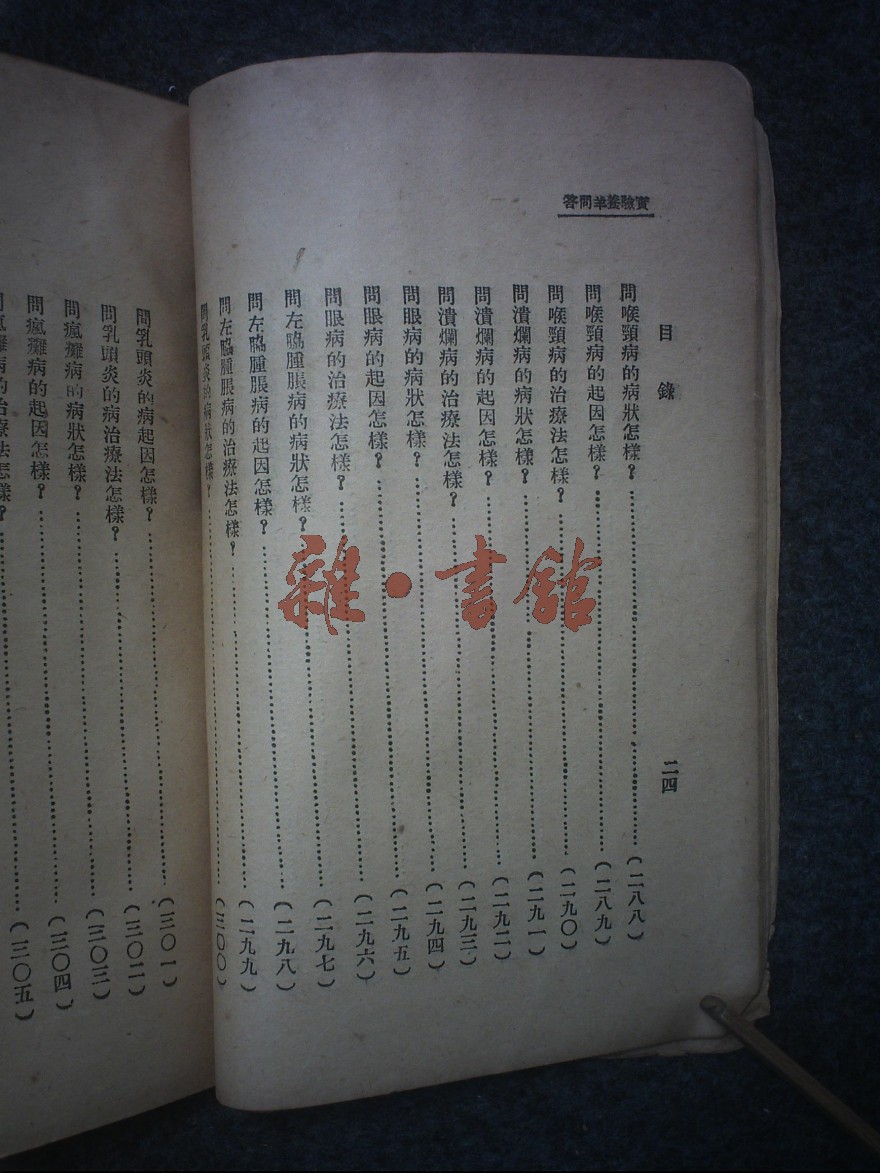 實驗養羊問答
目錄 二四
問喉頸病的病狀怎樣？……（二八八）
問喉頸病的起因怎樣？……（二八九）
問喉頸病的治療法怎樣？……（二九〇）
問潰爛病的病狀怎樣？……（二九一）
問潰爛病的起因怎樣？……（二九二）
問潰爛病的治療法怎樣？……（二九三）
問眼病的病狀怎樣？……（二九四）
問眼病的起因怎樣？……（二九五）
問眼病的治療法怎樣？……（二九六）
問左脇腫脹病的病狀怎樣？……（二九七）
問左脇腫脹病的起因怎樣？……（二九八）
問左脇腫脹病的治療法怎樣？……（二九九）
問乳頭炎的病狀怎樣？……（三〇〇）
問乳頭炎的病起因怎樣？……（三〇一）
問乳頭炎的病治療法怎樣？……（三〇二）
問瘋癱病的病狀怎樣？……（三〇三）
問瘋癱病的起因怎樣？……（三〇四）
瘋癱病的治療法怎樣？……（三〇五）
雜·書館